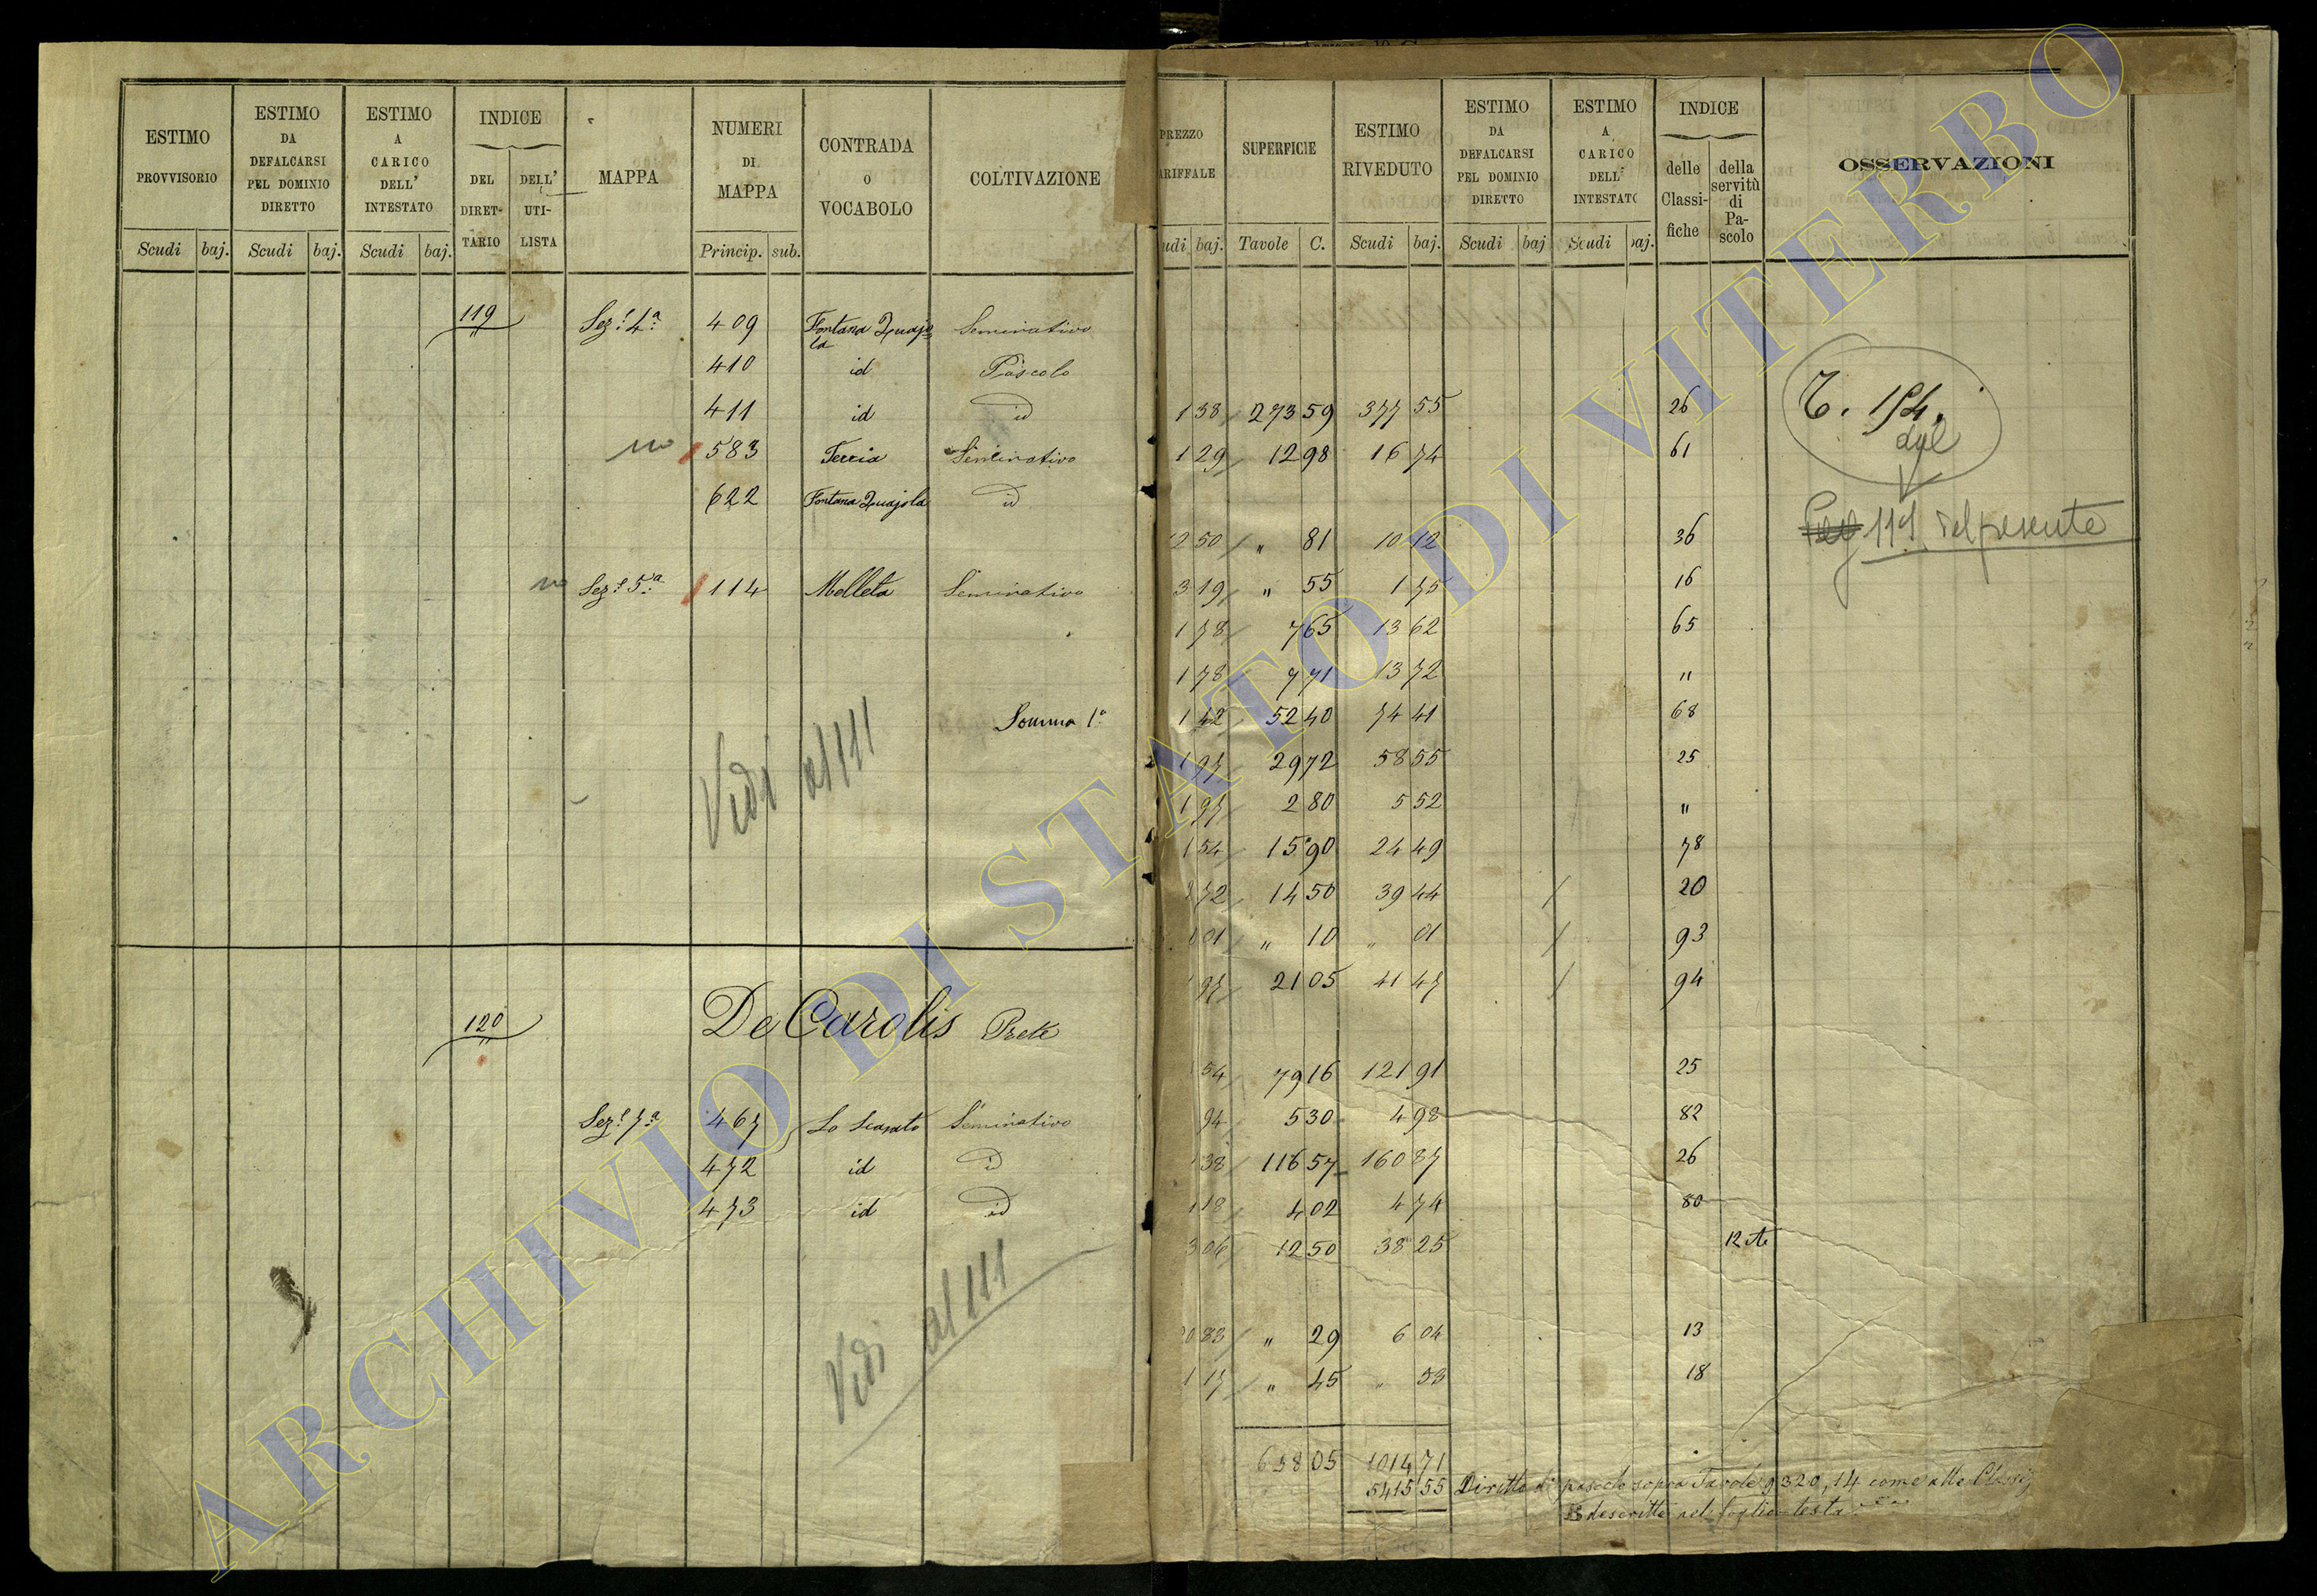 ESTIMO
PROVVISORIO
Scudi baj.
ESTIMO
DA
DEFALCARSI
PEL DOMINIO
DIRETTO
Scudi baj.
ESTIMO
A
CARICO
DELL'
INTESTATO
Scudi baj.
INDICE
DEL
DIRET-
TARIO
DELL'
UTI-
LISTA
MAPPA
NUMERI
DI
MAPPA
Princip. sub.
CONTRADA
O
VOCABOLO
COLTIVAZIONE
119 Sez.e 4a 409 Fontana Quajo
la Seminativo
410 id Pascolo
411 id id
no 583 Terria Seminativo
622 Fontana Quajola id
no Sez.e 5a 114 Molleta Seminativo
Somma 1a
Vedi al 111
120 De Carolis Prete
Sez.e 7a 467 Lo Scasato Seminativo
472 id id
473 id id
Vedi al 111
PREZZO
ARIFFALE
udi baj.
SUPERFICIE
Tavole C.
ESTIMO
RIVEDUTO
Scudi baj.
ESTIMO
DA
DEFALCARSI
PEL DOMINIO
DIRETTO
Scudi baj
ESTIMO
A
CARICO
DELL'
INTESTATO
Scudi baj.
INDICE
delle
Classi-
fiche
della
servitù
di
Pa-
scolo
OSSERVAZIONI
1 38 273 59 377 55 26
1 29 12 98 16 74 61
2 50 " 81 10 12 36
3 19 " 55 1 75 16
1 78 7 65 13 62 65
1 78 7 71 13 72 "
1 42 52 40 74 41 68
1 97 29 72 58 55 25
1 97 2 80 5 52 "
1 54 15 90 24 49 78
2 72 14 50 39 44 20
01 " 10 " 01 93
97 21 05 41 47 94
54 79 16 121 91 25
94 5 30 4 98 82
38 116 57 160 87 26
1 18 4 02 4 74 80
3 06 12 50 38 25 12
83 " 29 6 04 13
1 17 " 45 " 53 18
638 05 1014 71
5415 55 Diritto di pascolo sopra Tavole 9320,14 come alle
descritte nel foglio testa
dal
119 del presente
ARCHIVIO DI STATO DI VITERBO